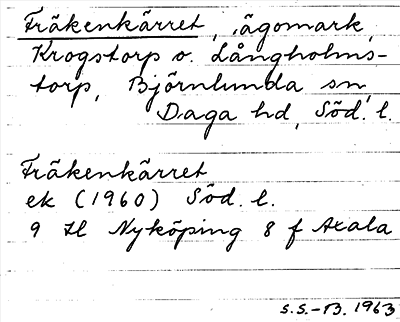 Fräkenkärret, ägomark,
Krogstorp o. Långholms-
torp, Björnlunda sn,
Daga hd, Söd. l.
Fräkenkärret
ek (1960) Söd. l.
9 H Nyköping 8 f Axala
S.S.-B. 1963